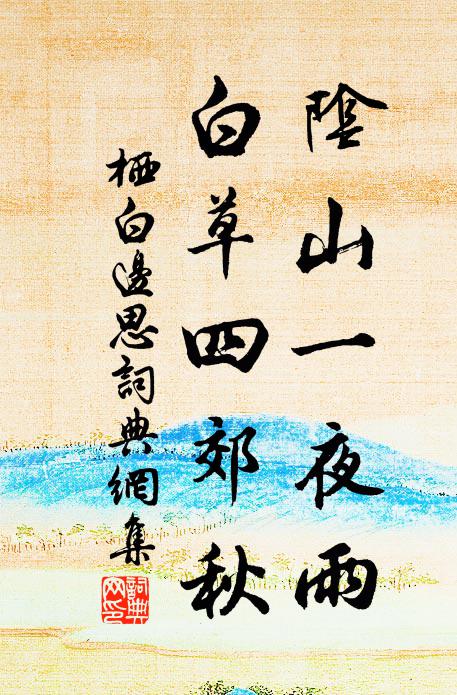 陰山一夜雨
白草四郊秋
栖白邊思詞典網集
詞典
网印